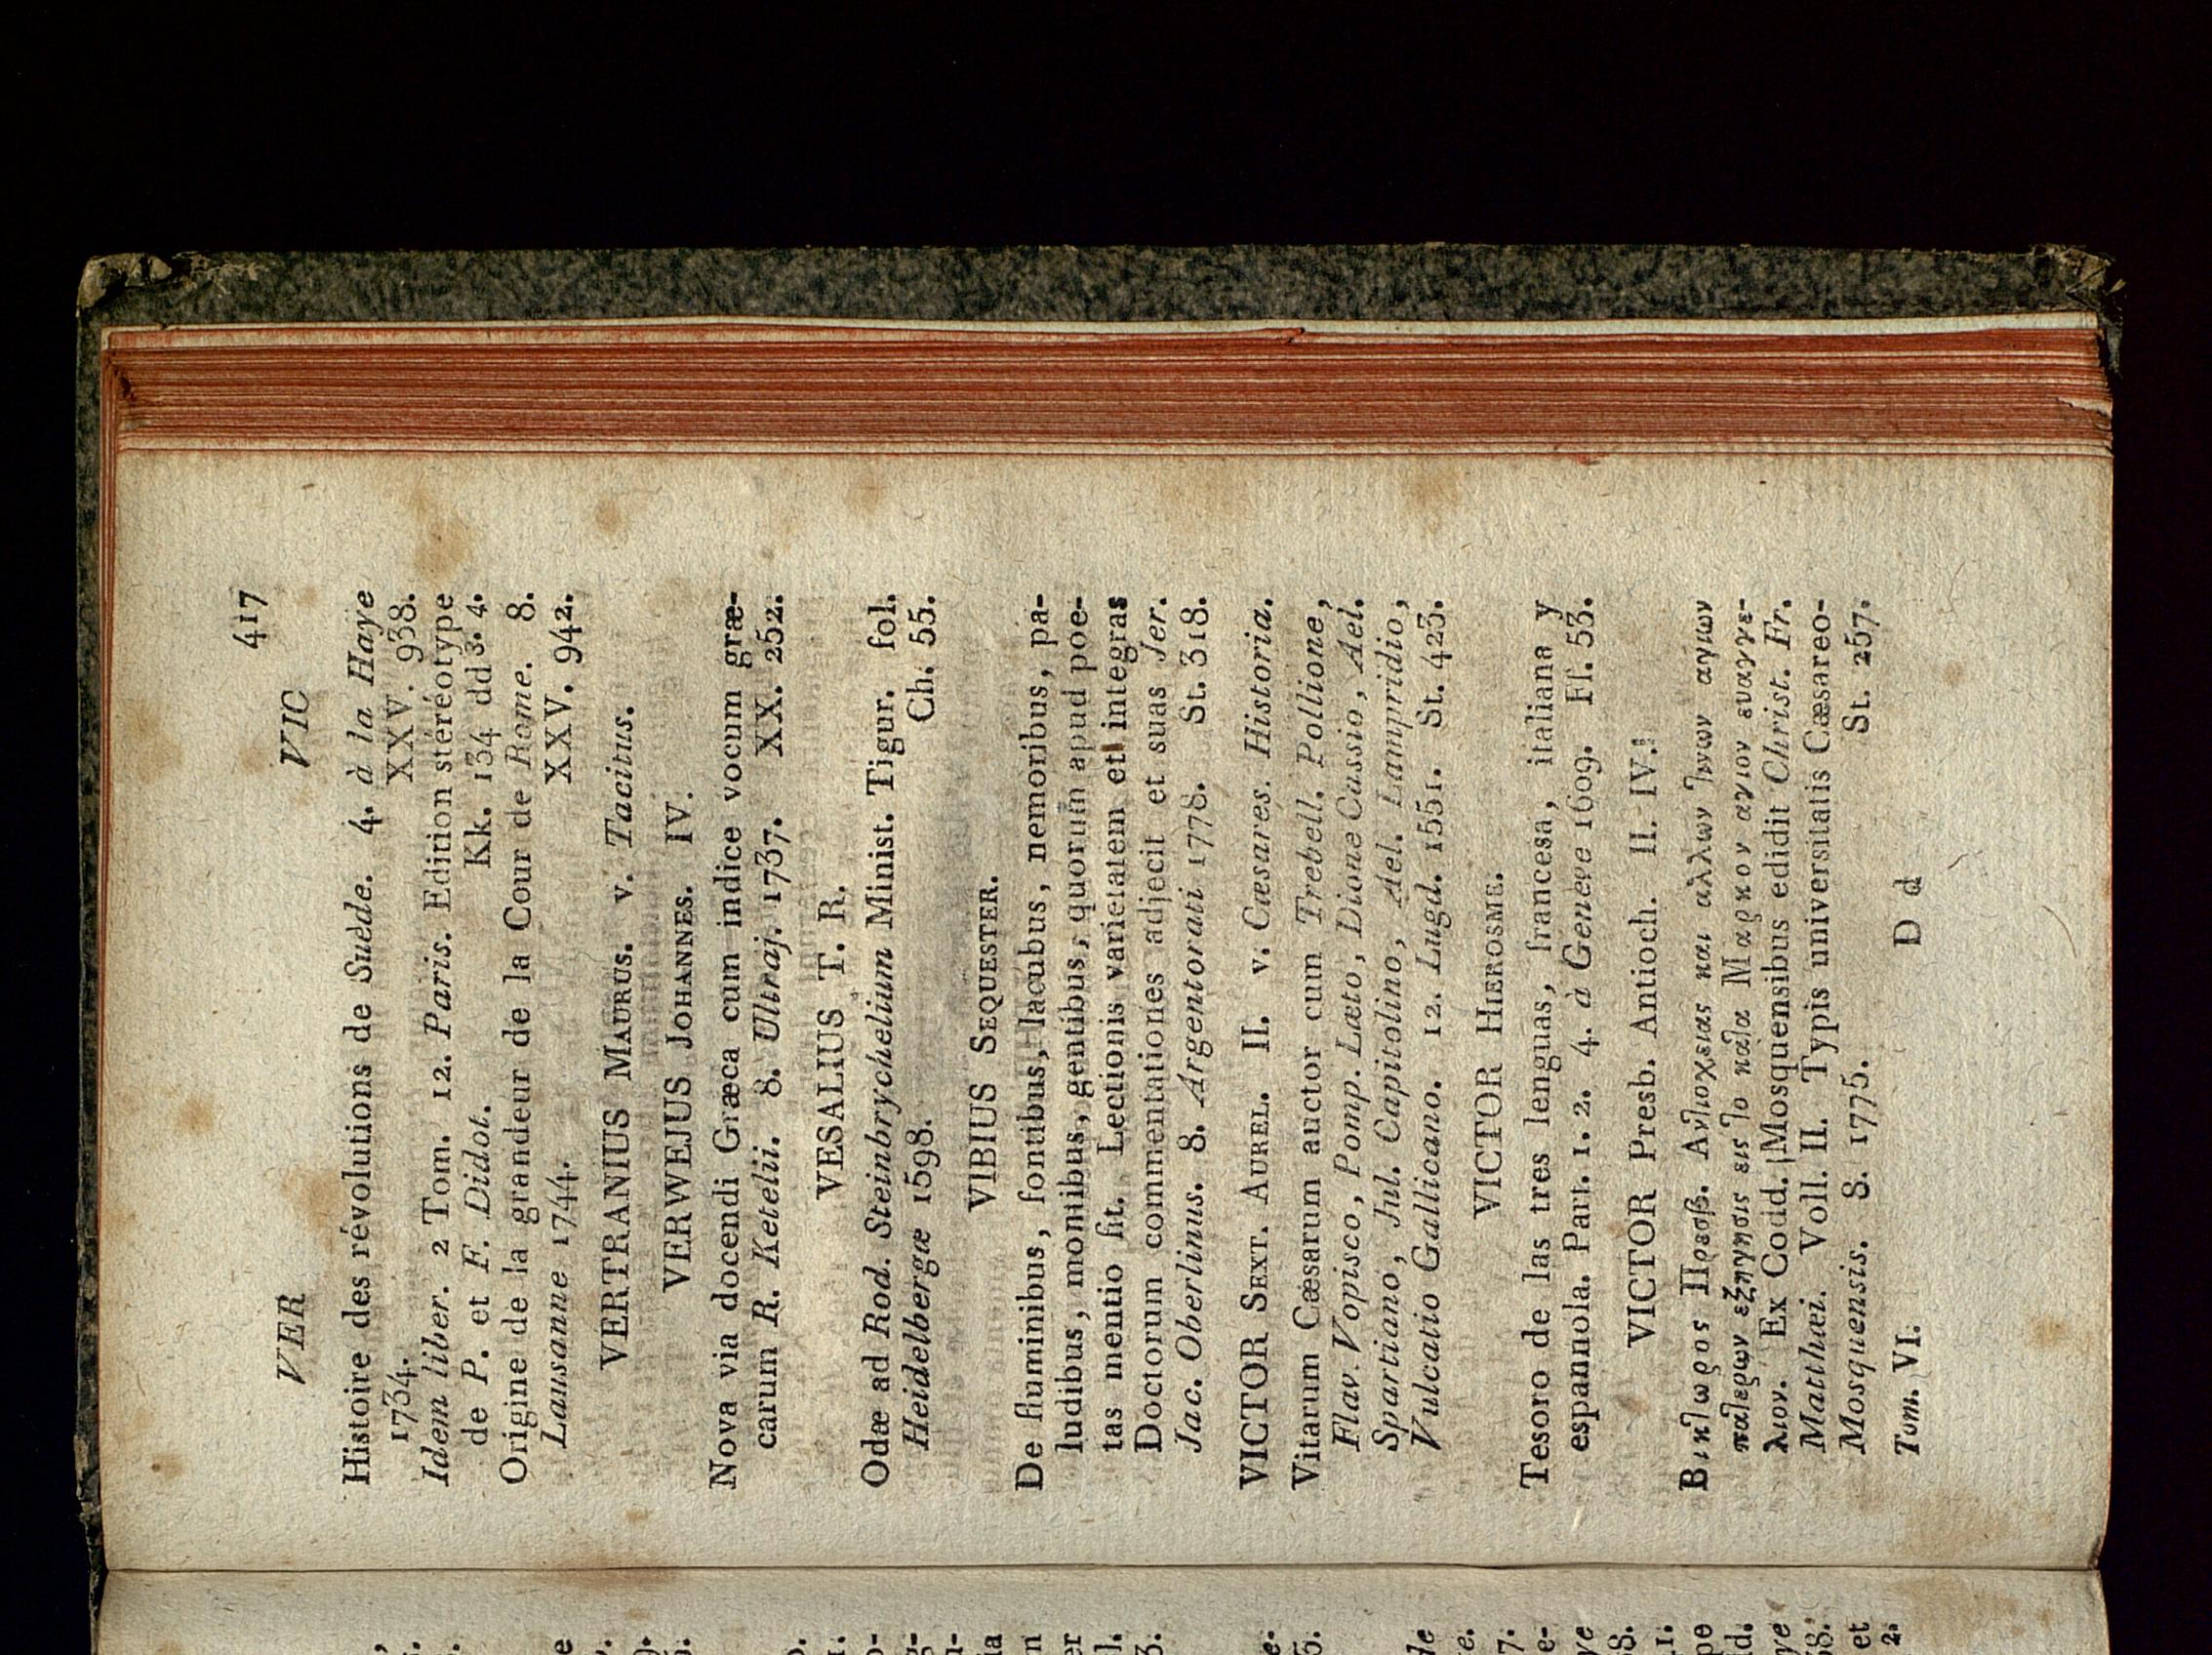 417
VER VIC
Histoire des révolutions de Suède. 4. à la Haye
1734. XXV. 938.
Idem liber. 2 Tom. 12. Paris. Edition stéréotype
de P. et F. Didot. Kk. 134 dd 3. 4.
Origine de la grandeur de la Cour de Rome. 8.
Lausanne 1744. XXV. 942.
VERTRANIUS MAURUS. v. Tacitus.
VERWEJUS JOHANNES. IV.
Nova via docendi Græca cum indice vocum græ-
carum R. Ketelii. 8. Ultraj. 1737. XX. 252.
VESALIUS T. R.
Odæ ad Rod. Steinbrychelium Minist. Tigur. fol.
Heidelbergæ 1598. Ch. 55.
VIBIUS SEQUESTER.
De fluminibus, fontibus, lacubus, nemoribus, pa-
ludibus, monibus, gentibus, quorum apud poe-
tas mentio fit. Lectionis varietatem et integras
Doctorum commentationes adjecit et suas Jer.
Jac. Oberlinus. 8. Argentorati 1778. St. 318.
VICTOR SEXT. AUREL. II. v. Cæsares. Historia.
Vitarum Cæsarum auctor cum Trebell. Pollione,
Flav. Vopisco, Pomp. Læto, Dione Cassio, Ael.
Spartiano, Jul. Capitolino, Ael. Lampridio,
Vulcatio Gallicano. 12. Lugd. 1551. St. 423.
VICTOR HIEROSME.
Tesoro de las tres lenguas, francesa, italiana y
espannola. Part. 1. 2. 4. à Geneve 1609. Ff. 53.
VICTOR Presb. Antioch. II. IV.
Βικτωρος Πρεσβ. Αντιοχειας και αλλων τινων αγιων
πατερων εξηγησις εις το κατα Μαρκον αγιον ευαγγε-
λιον. Ex Codd. Mosquensibus edidit Christ. Fr.
Matthæi. Voll. II. Typis universitatis Cæsareo-
Mosquensis. 8. 1775. St. 257.
Tom. VI. D d